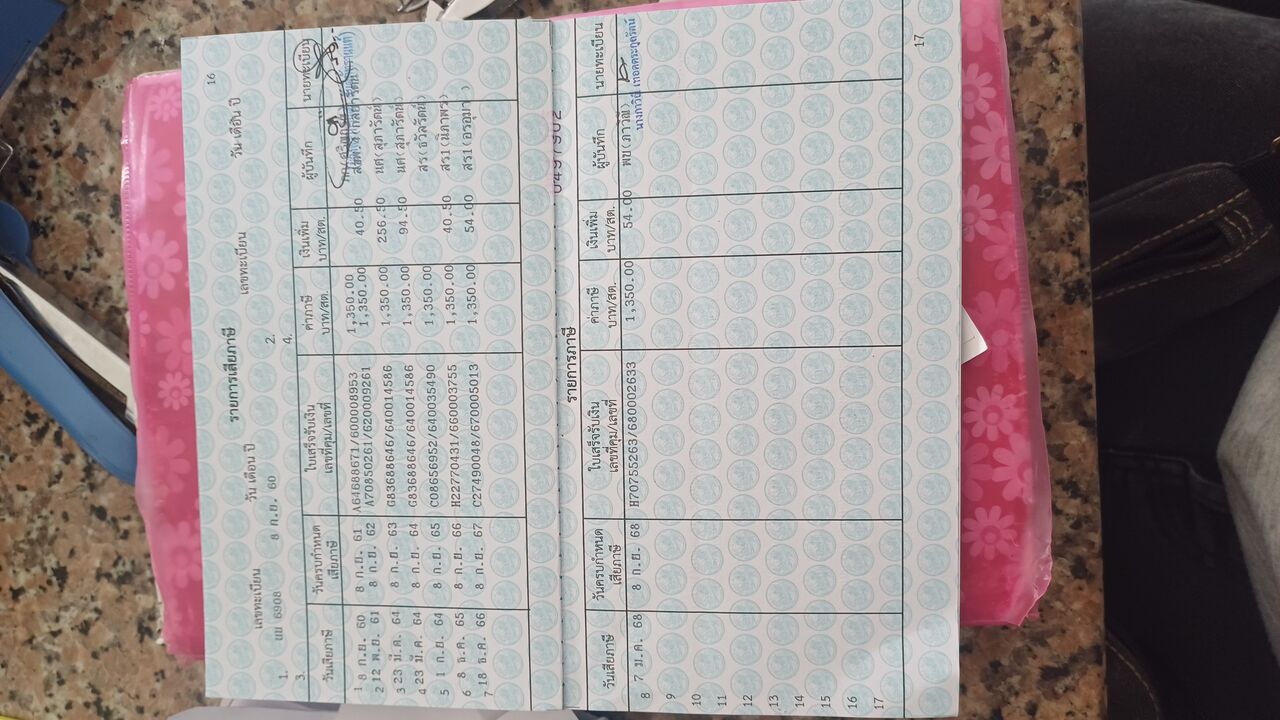 16
รายการเสียภาษี
เลขทะเบียน วัน เดือน ปี เลขทะเบียน วัน เดือน ปี
1. นม 6908 8 ก.ย. 60 2.
3. 4.
วันเสียภาษี วันครบกำหนดเสียภาษี ใบเสร็จรับเงิน เลขที่คุม/เลขที่ ค่าภาษี บาท/สต. เงินเพิ่ม บาท/สต. ผู้บันทึก นายทะเบียน
1 8 ก.ย. 60 8 ก.ย. 61 A64688671/600008953 1,350.00
2 12 พ.ย. 61 8 ก.ย. 62 A70850261/620009261 1,350.00 40.50
3 23 มี.ค. 64 8 ก.ย. 63 G83688646/640014586 1,350.00 256.50 นศ(สุภารัตน์)
4 23 มี.ค. 64 8 ก.ย. 64 G83688646/640014586 1,350.00 94.50 นศ(สุภารัตน์)
5 1 ก.ย. 64 8 ก.ย. 65 C08656952/640035490 1,350.00 สร(ธวัลรัตน์)
6 8 ธ.ค. 65 8 ก.ย. 66 H22770431/660003755 1,350.00 40.50 สร1(นิภาพร)
7 18 ธ.ค. 66 8 ก.ย. 67 C27490048/670005013 1,350.00 54.00 สร1(อรอุมา)
0497902
รายการภาษี
วันเสียภาษี วันครบกำหนดเสียภาษี ใบเสร็จรับเงิน เลขที่คุม/เลขที่ ค่าภาษี บาท/สต. เงินเพิ่ม บาท/สต. ผู้บันทึก นายทะเบียน
8 7 ม.ค. 68 8 ก.ย. 68 H70755263/680002633 1,350.00 54.00 พบ(ภาวิณี)
9
10
11
12
13
14
15
16
17
17